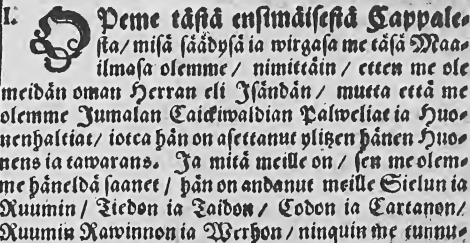 I. OPeme tästä ensimäisestä Cappale-
sta/ misä säädysä ia wirgasa me täsä Maa-
ilmasa olemme/ nimittäin/ etten me ole
meidän oman Herran eli Isändän/ mutta että me
olemme Jumalan Caickiwaldian Palweliat ia Huo-
nenhaltiat/ iotca hän on asettanut ylitzen hänen Huo-
nens ia tawarans. Ja mitä meille on/ sen me olem-
me häneldä saanet/ hän on andanut meille Sielun ia
Ruumin/ Tiedon ia Taidon/ Codon ia Cartanon/
Ruumin Rawinnon ia Werhon/ ninquin me tunnu-